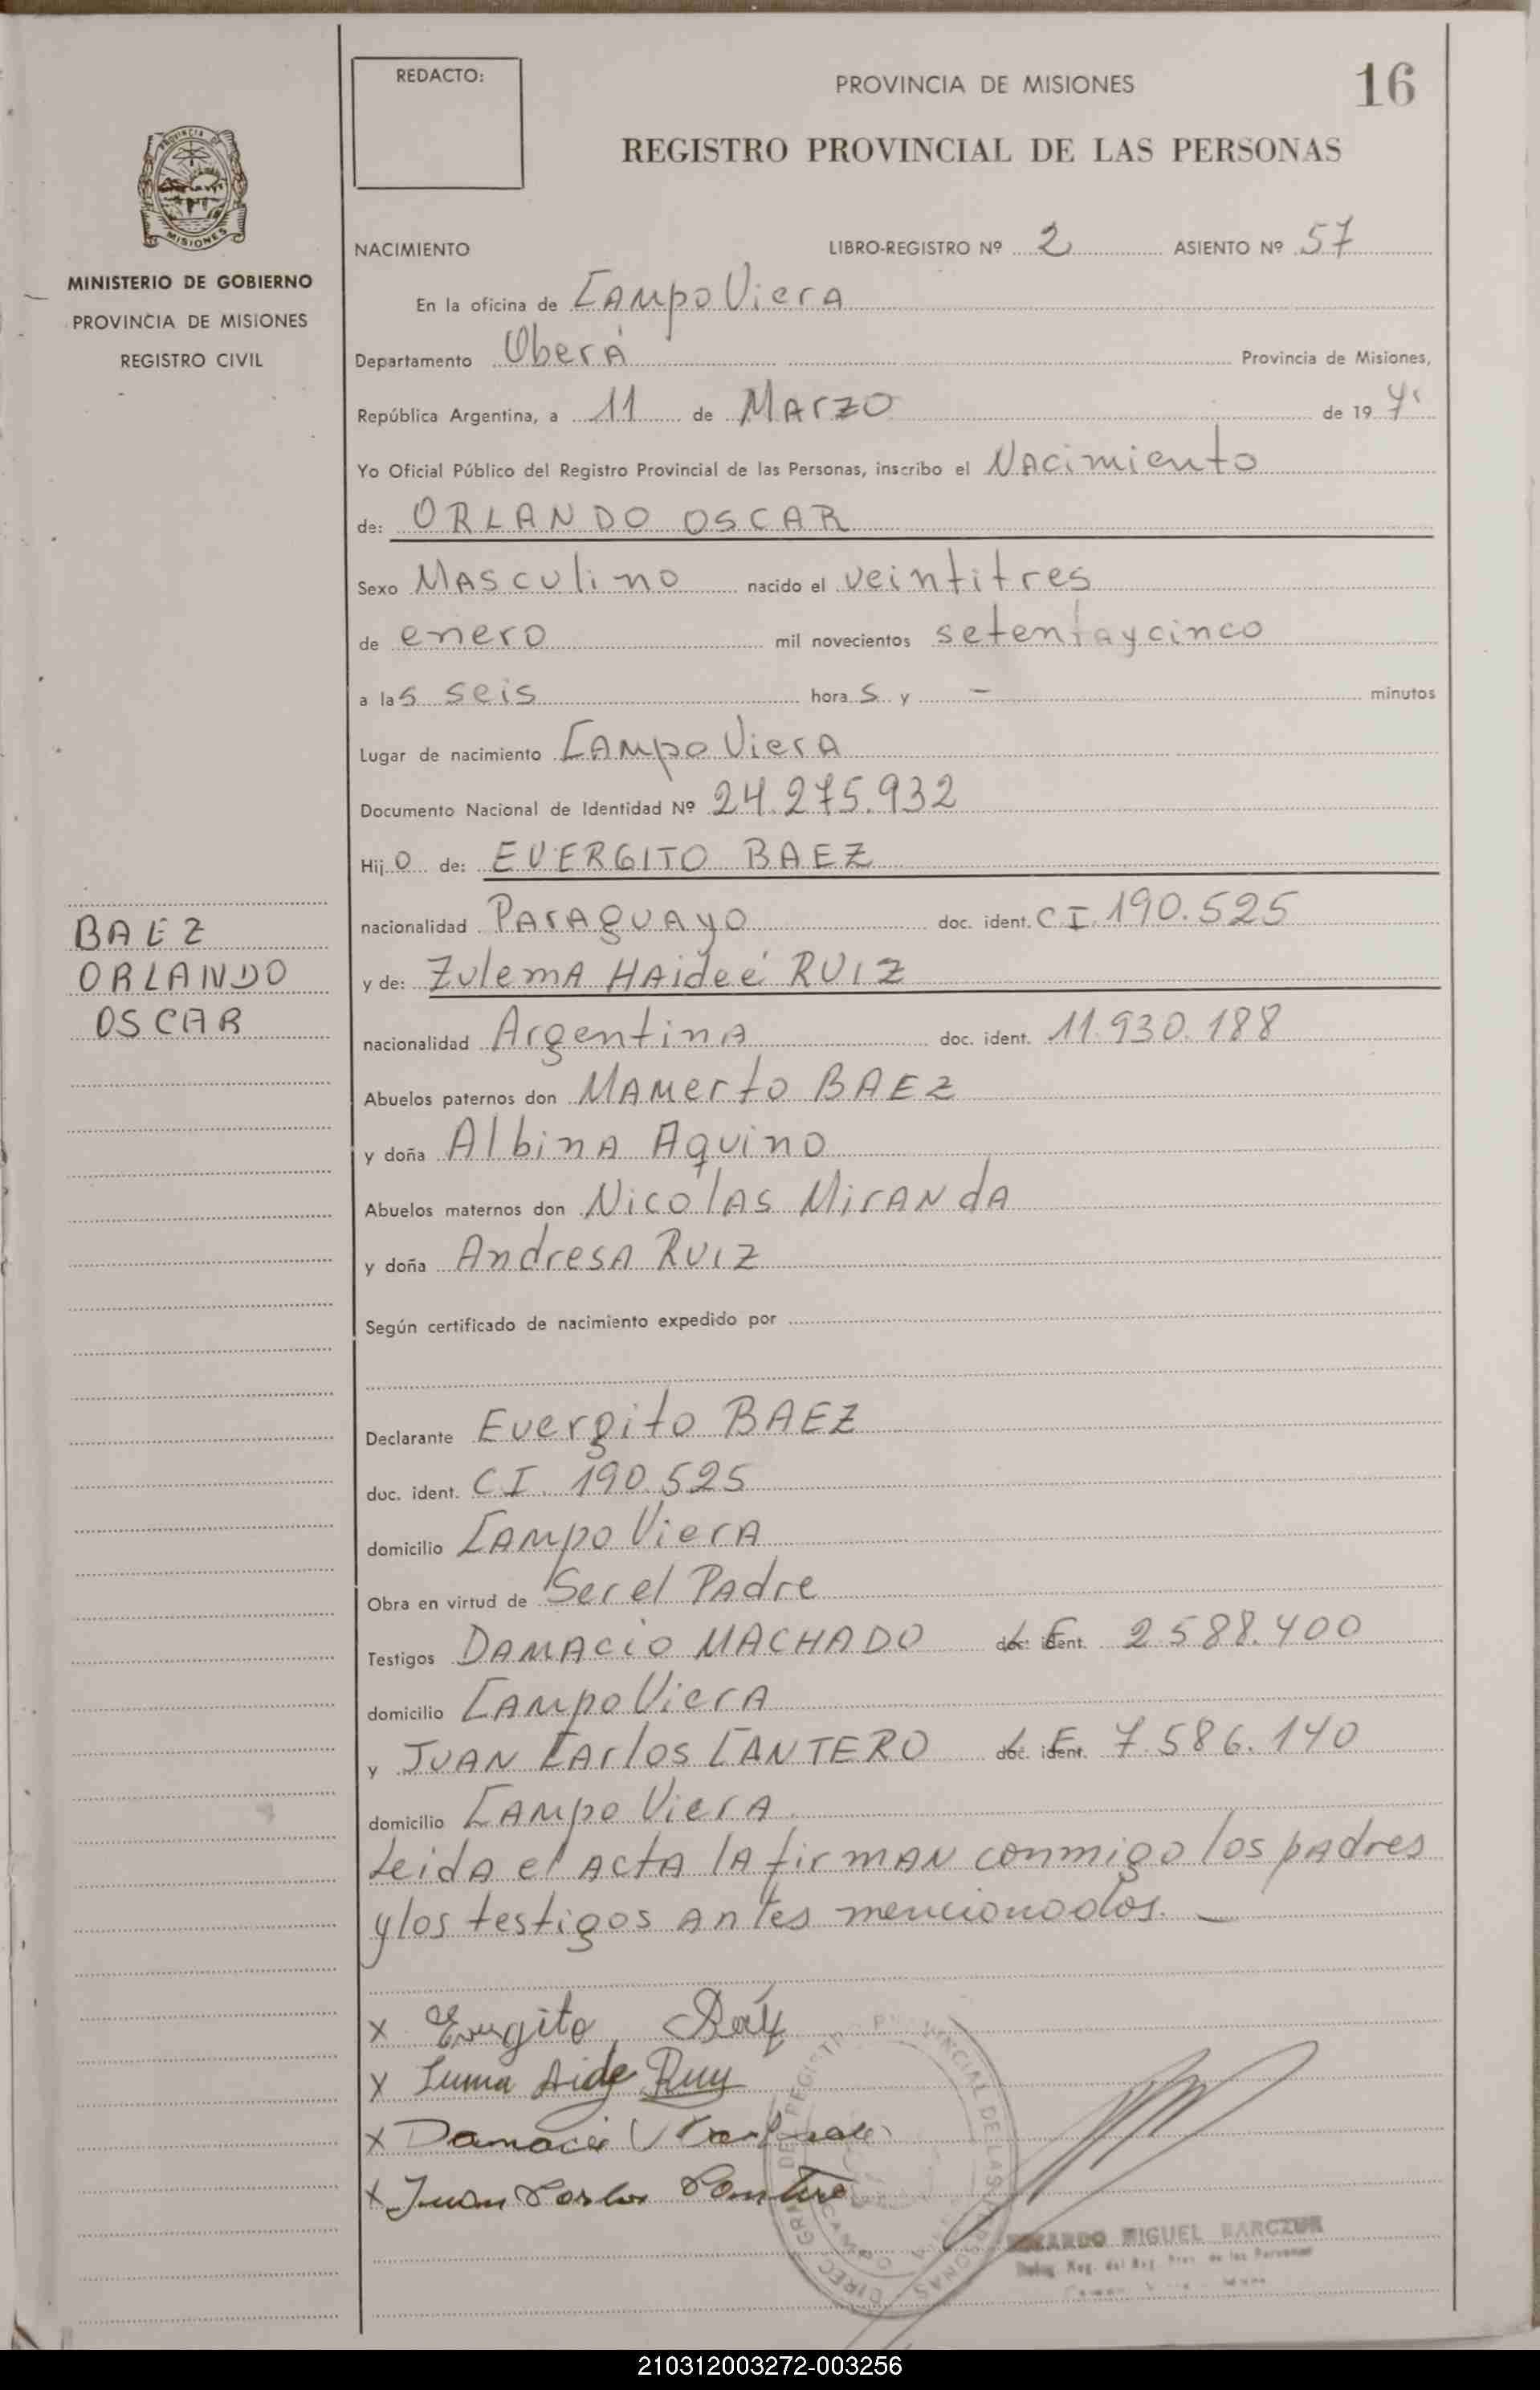 REDACTO:
PROVINCIA DE MISIONES
16
REGISTRO PROVINCIAL DE LAS PERSONAS
PROVINCIA DE
MISIONES
MINISTERIO DE GOBIERNO
PROVINCIA DE MISIONES
REGISTRO CIVIL
NACIMIENTO LIBRO-REGISTRO Nº 2 ASIENTO Nº 57
En la oficina de CAMPO VierA
Departamento OberÁ Provincia de Misiones,
República Argentina, a 11 de MArZO de 19
Yo Oficial Público del Registro Provincial de las Personas, inscribo el NAcimiento
de: ORLANDO OSCAR
Sexo MASculino nacido el veintitres
de enero mil novecientos setentaycinco
a las seis horas y - minutos
Lugar de nacimiento CAMPO VierA
Documento Nacional de Identidad Nº 24.275.932
Hijo de: EVERGITO BAEZ
nacionalidad PArAgUAyo doc. ident. CI. 190.525
y de: ZulemA HAideé RUIZ
nacionalidad ArgentinA doc. ident. 11.930.188
Abuelos paternos don MAMerto BAEZ
y doña AlbinA Aquino
Abuelos maternos don NicolÁs MirANdA
y doña AndresA RUIZ
Según certificado de nacimiento expedido por
Declarante Evergito BAEZ
doc. ident. CI. 190.525
domicilio CAMPO VierA
Obra en virtud de Ser el PAdre
Testigos DAMACIO MACHADO doc. ident. L.E. 2.588.400
domicilio CAMPO VierA
y JUAN CArlos CANTERO doc. ident. L.E. 7.586.140
domicilio CAMPO VierA
LeidA el ActA lA firmAN conmigo los pAdres
y los testigos Antes mencionados. -
BAEZ
ORLANDO
OSCAR
X Evergito Báez
X Aide Ruiz
X Damacio
X Juan Carlos Cantero
MIGUEL
210312003272-003256